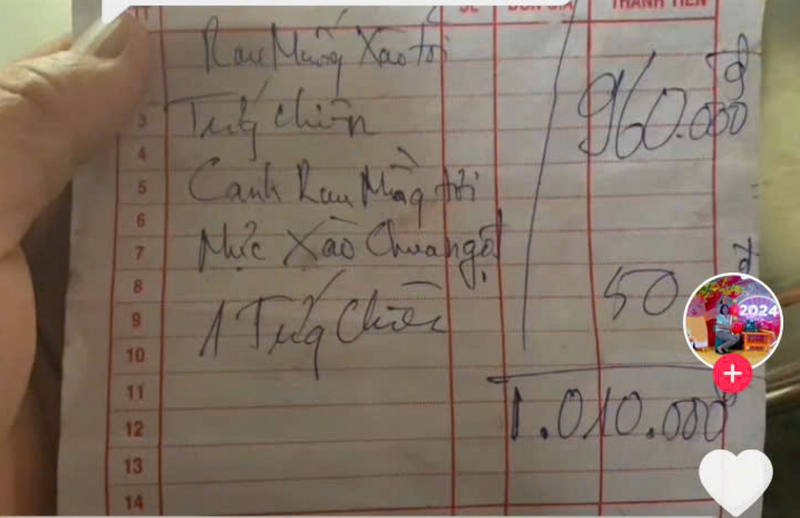 TT SL ĐƠN GIÁ THÀNH TIỀN
Rau Muống Xào tỏi
3 Trứng chiên 960.000đ
4
5 Canh Rau Mồng tơi
6
7 Mực Xào Chua ngọt
8
9 1 Trứng Chiên 50
10
11
12 1.010.000đ
13
14
2024